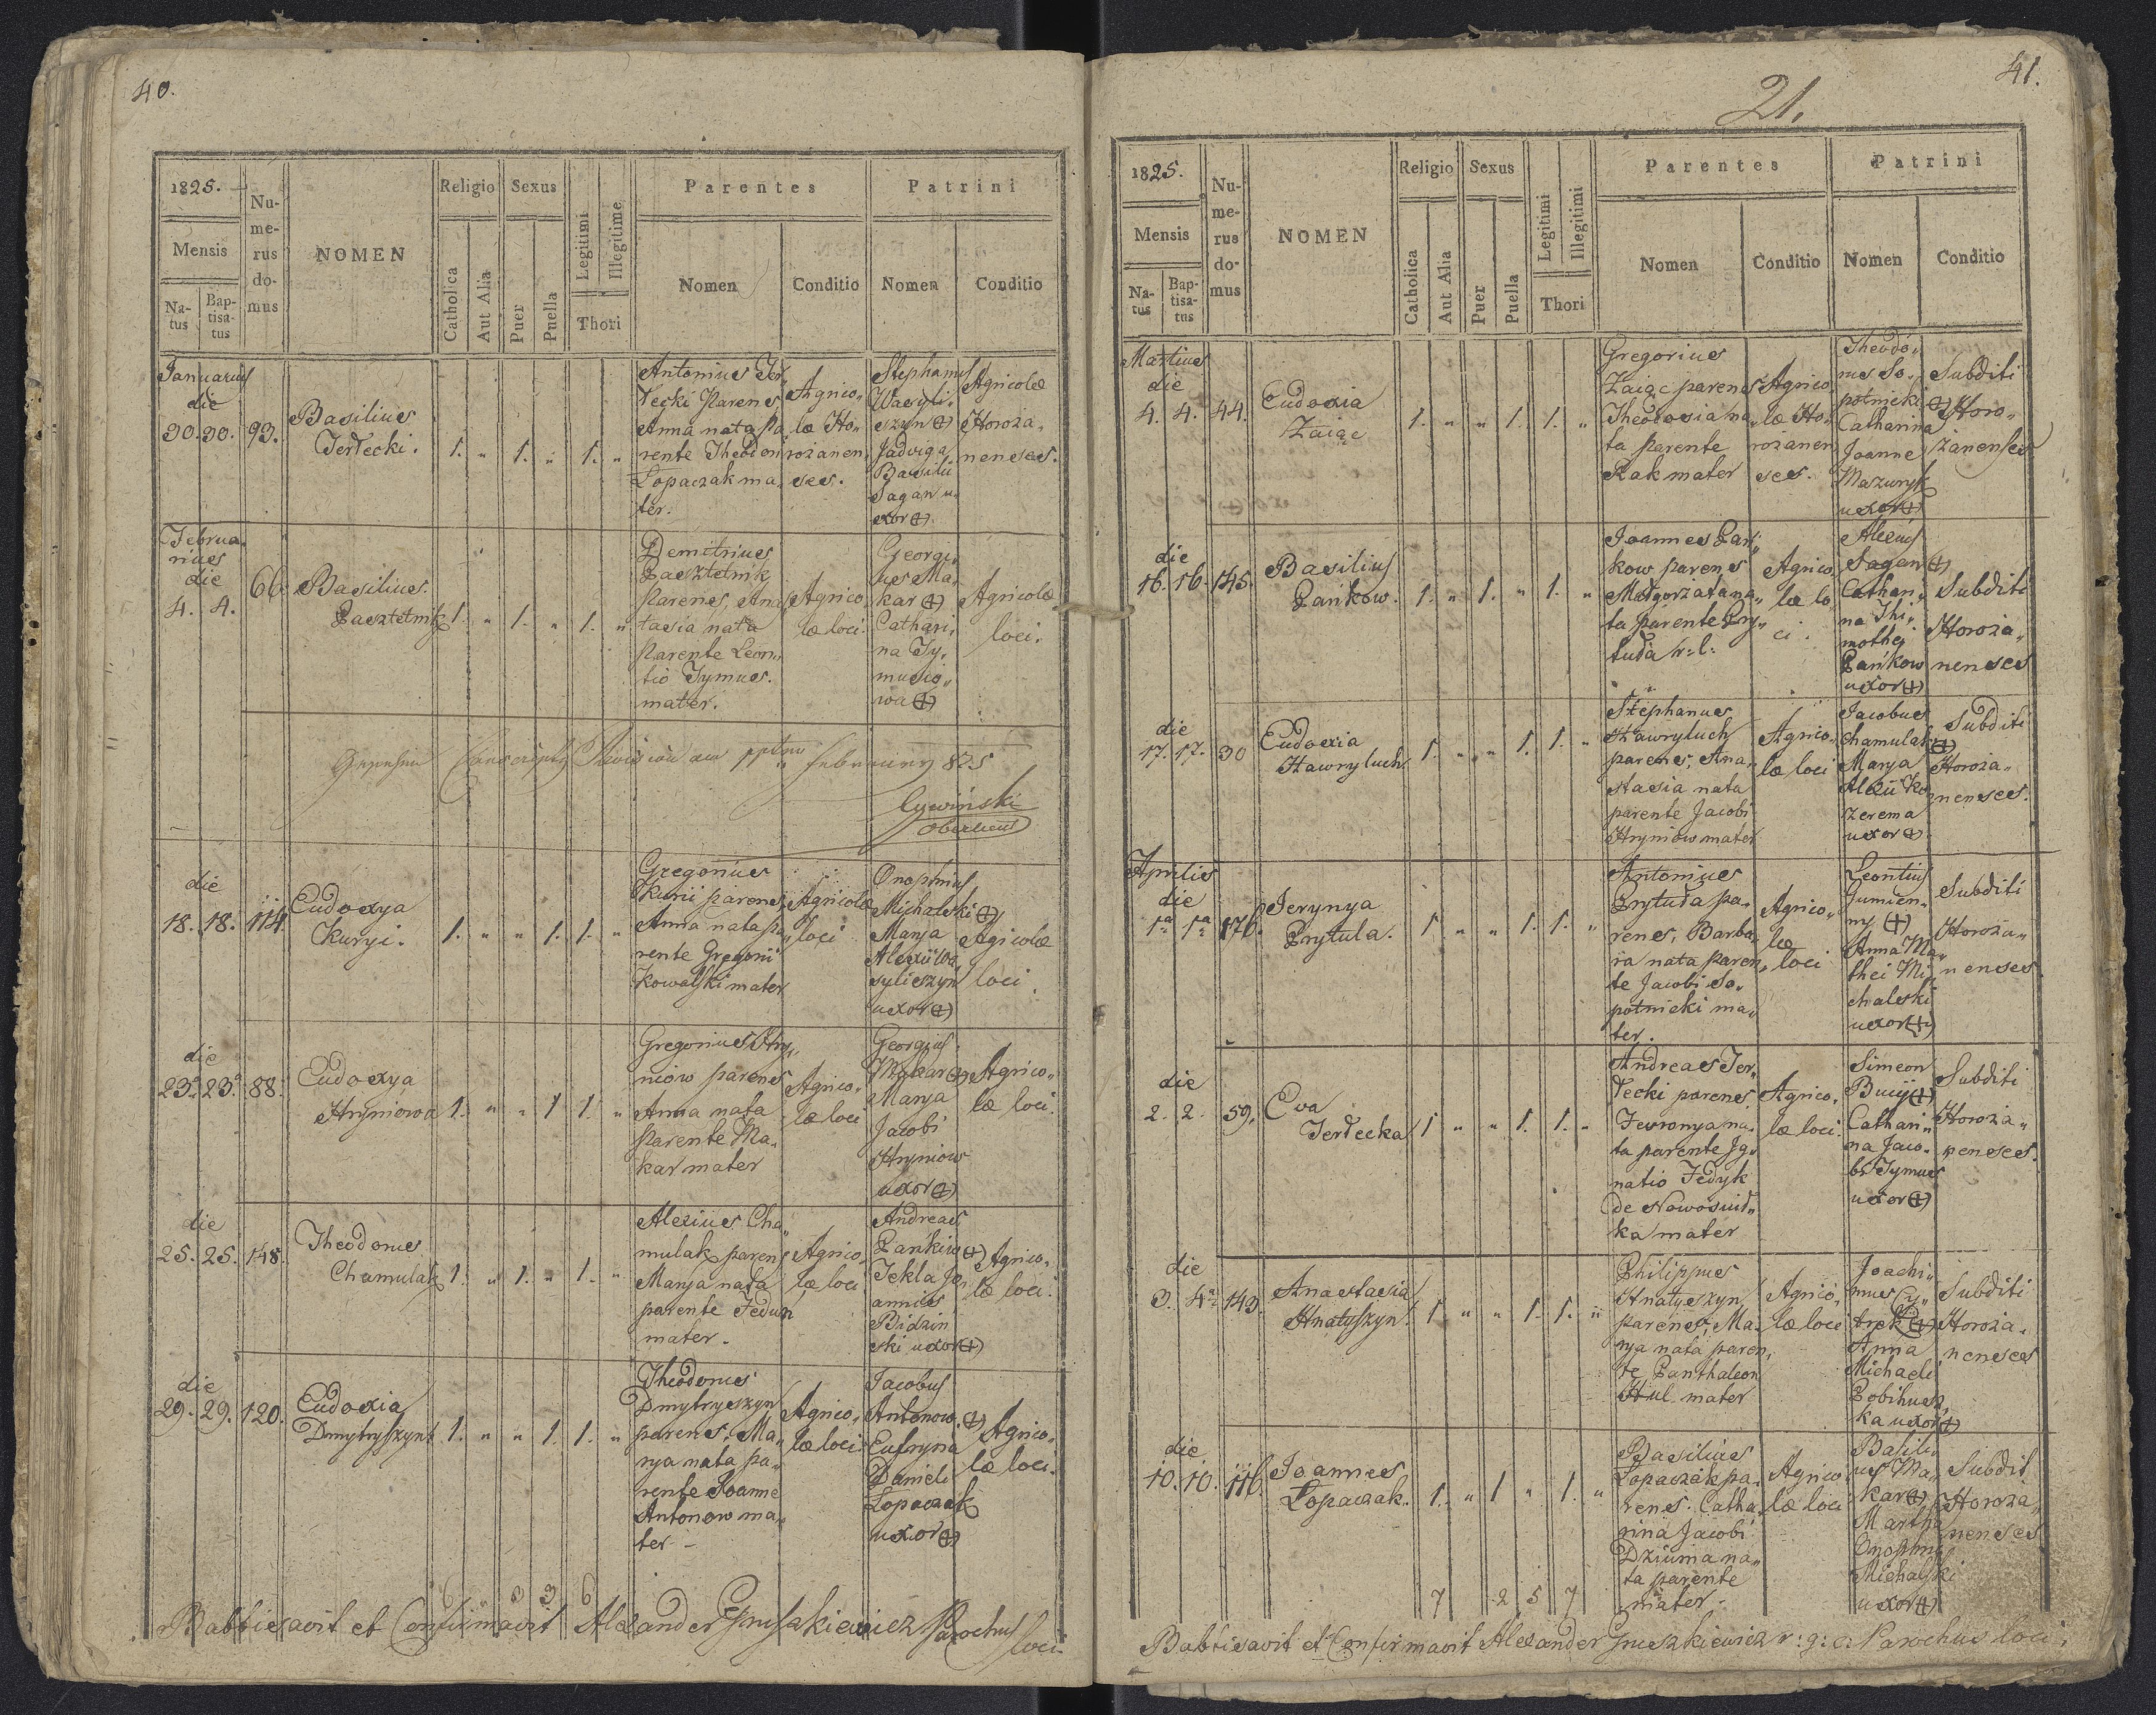 40.
1825.
Numerus domus
NOMEN
Religio
Sexus
Legitimi
Illegitime
Parentes
Patrini
Mensis
Natus
Baptisatus
Catholica
Aut Alia
Puer
Puella
Thori
Nomen
Conditio
Nomen
Conditio
Januarius
die
30. 30. 93.
Basilius
Terlecki.
1. " 1. " 1. "
Antonius Ter„
lecki Parens
Anna nata Pa„
rente Theodori
Łopaczak ma„
ter.
Agrico„
læ Ho„
rożanen„
ses.
Stephanus
Wasyli„
szyn (+)
Jadviga
Basilii
Sagan u„
xor (+)
Agricolæ
Horoża„
nenses.
Februa„
rius
die
4. 4. 66.
Basilius
Pasztetnik
1. " 1. " 1. "
Demitrius
Pasztetnik
Parens, Anas
tasia nata
Parente Leon„
tio Tymus.
mater.
Agrico„
læ loci.
Georgi„
us Ma„
kar (+)
Cathari„
na Ty„
musio„
wa (+)
Agricolæ
loci.
February 825
Cywiński
die
18. 18. 114.
Eudoxya
Kuryi.
1. " " 1. 1. "
Gregorius
Kurii parens
Anna nata pa„
rente Gregorii
Kowalski mater
Agricolæ
loci
Onophrius
Michalski (+)
Marya
Alexii Wa„
syliszyn
uxor (+)
Agricolæ
loci.
die
23. 23. 88.
Eudoxya
Hryniowa
1. " " 1 1. "
Gregorius Hry„
niow parens
Anna nata
parente Ma„
kar mater
Agrico„
læ loci
Georgius
Makar (+)
Marya
Jacobi
Hryniow
uxor (+)
Agrico„
læ loci.
die
25. 25. 148.
Theodorus
Chamulak
1. " 1. " 1. "
Alexius Cha„
mulak parens
Marya nata
parente Fedun
mater.
Agrico„
læ loci
Andreas
Pankiw (+)
Tekla Jo„
annis
Bidzin
ski uxor (+)
Agrico„
læ loci.
die
29. 29. 120.
Eudoxia
Dmytryszyn
1. " " 1. 1. "
Theodorus
Dmytryszyn
parens, Ma„
rya nata pa„
rente Joanne
Antonow ma„
ter
Agrico„
læ loci
Jacobus
Antonow. (+)
Eufryna
Danieli
Łopaczak
uxor (+)
Agrico„
læ loci.
6 3 3 6
Babtisavit et Confirmavit Alexander Gruszkiewicz Parochus loci
41.
21.
1825.
Numerus domus
NOMEN
Religio
Sexus
Legitimi
Illegitimi
Parentes
Patrini
Mensis
Natus
Baptisatus
Catholica
Aut Alia
Puer
Puella
Thori
Nomen
Conditio
Nomen
Conditio
Martius
die
4. 4. 44.
Eudoxia
Zaiąc
1. " " 1. 1. "
Gregorius
Zaiąc parens
Theodosia na„
ta Parente
Rak mater
Agrico„
læ Ho„
rożanen
ses.
Theodo„
rus So„
potnicki (+)
Catharina
Joanne
Mazuryk
uxor (+)
Subditi
Horo„
żanenses
die
16. 16. 145.
Basilius
Pańkow.
1. " 1. " 1. "
Joannes Pań„
kow parens
Małgorzata na„
ta parente Pry„
tuła r: l:
Agrico„
læ lo„
ci.
Alexius
Sagan (+)
Cathari„
na Thi„
mothej
Pańkow
uxor (+)
Subditi
Horoża„
nenses
die
17. 17. 30
Eudoxia
Hawryluch
1. " " 1. 1. "
Stephanus
Hawryluch
parens, Ana„
stasia nata
parente Jacobi
Hryniow mater
Agrico„
læ loci
Jacobus
Chamulak (+)
Marya
Alexii Ko
zerema
uxor (+)
Subditi
Horoża„
nenses.
Aprilis
die
1a 1a 176.
Jerynya
Prytula.
1 " " 1. 1. "
Antonius
Prytuła pa„
rens, Barba„
ra nata paren„
te Jacobi So„
potnicki ma„
ter.
Agrico„
læ
loci
Leontius
Humien„
ny (+)
Anna Ma„
thei Mi„
chalski
uxor (+)
Subditi
Horoża„
nenses
die
2. 2. 59.
Eva
Terlecka
1 " " 1. 1. "
Andreas Ter„
lecki parens
Fevronya na„
ta parente Ig„
natio Fedyk
de Nowosiuł„
ka mater
Agrico„
læ loci.
Simeon
Buiy (+)
Cathari„
na Jaco„
bi Tymus
uxor (+)
Subditi
Horoża„
nenses.
die
3. 4a 143.
Anastasia
Hnatyszyn.
1 " " 1. 1. "
Philippus
Hnatyszyn
parens, Ma„
rya nata paren„
te Panthaleon
Hul mater
Agrico„
læ loci
Joachi„
mus Cy„
tryk (+)
Anna
Michaeli
Pobihusz„
ka uxor (+)
Subditi
Horoża„
nenses
die
10. 10. 116.
Joannes
Łopaczak.
1. " 1 " 1. "
Basilius
Łopaczak pa„
rens. Catha„
rina Jacobi
Dziuma na„
ta parente
mater.
Agrico
læ loci
Basili„
us Ma„
kar (+)
Martha
Onophrii
Michalski
uxor (+)
Subditi
Horoża„
nenses
7 2 5 7
Babtisavit et Confirmavit Alexander Gruszkiewicz r: g: c: Parochus loci,